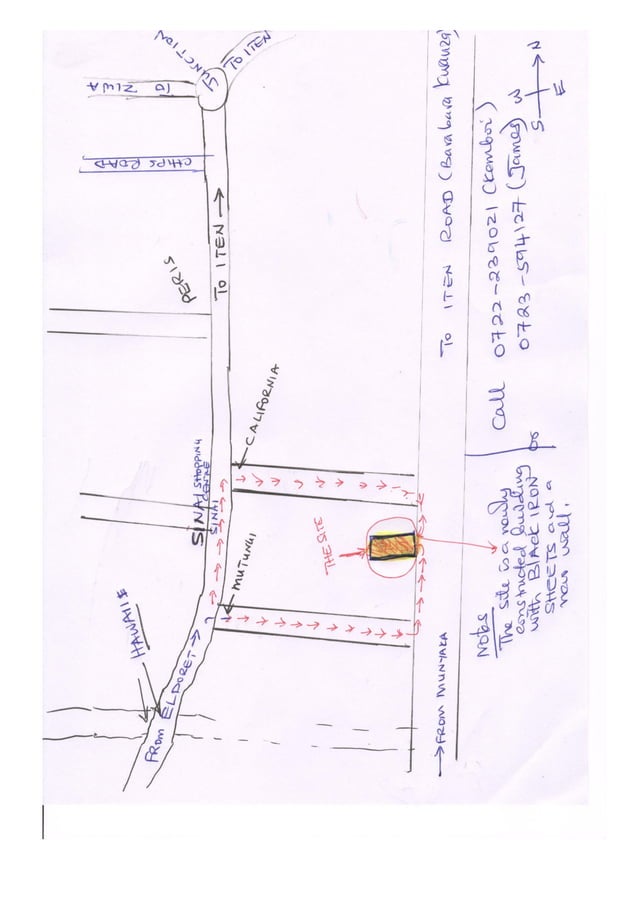 JUNCTION
TO ITEN
TO ZIWA
CHIPS ROAD
PERIS
TO ITEN →
SINAI SHOPPING
CENTRE
SINAI
CALIFORNIA
MUTUNGI
HAWAII
FROM ELDORET →
THE SITE
→ FROM MUNYAKA
TO ITEN ROAD (Barabara Kuranza)
S N
W E
Notes
The site is a newly
constructed building
with BLACK IRON
SHEETS and a
new wall.
Call 0722-239021 (Kemboi)
or 0723-594127 (James)